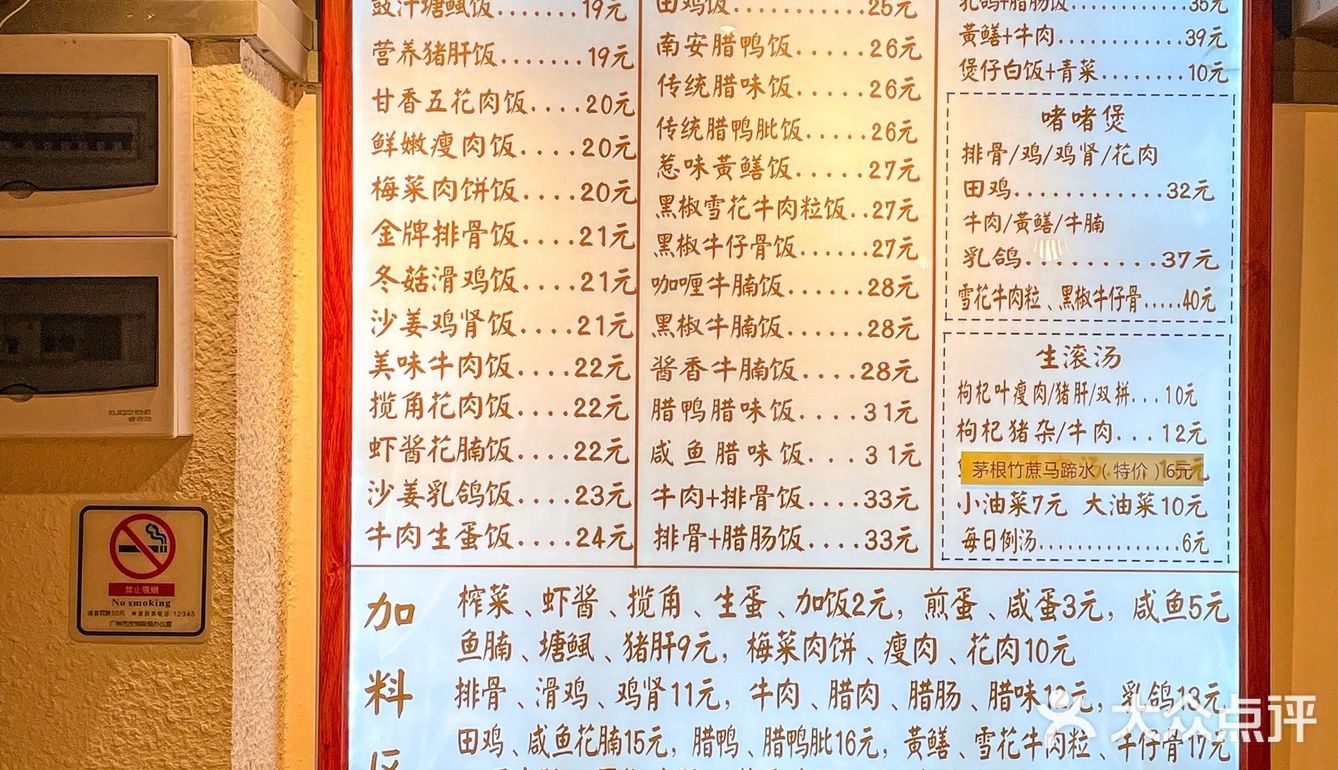 豉汁塘鲺饭.......19元
营养猪肝饭.......19元
甘香五花肉饭....20元
鲜嫩瘦肉饭....20元
梅菜肉饼饭....20元
金牌排骨饭....21元
冬菇滑鸡饭....21元
沙姜鸡肾饭....21元
美味牛肉饭....22元
揽角花肉饭....22元
虾酱花腩饭....22元
沙姜乳鸽饭....23元
牛肉生蛋饭....24元
田鸡饭..........25元
南安腊鸭饭.....26元
传统腊味饭.....26元
传统腊鸭肶饭.....26元
惹味黄鳝饭.....27元
黑椒雪花牛肉粒饭..27元
黑椒牛仔骨饭.....27元
咖喱牛腩饭......28元
黑椒牛腩饭......28元
酱香牛腩饭....28元
腊鸭腊味饭....31元
咸鱼腊味饭...31元
牛肉+排骨饭....33元
排骨+腊肠饭....33元
乳鸽+腊肠饭......35元
黄鳝+牛肉..........39元
煲仔白饭+青菜.......10元
啫啫煲
排骨/鸡/鸡肾/花肉
田鸡............32元
牛肉/黄鳝/牛腩
乳鸽.........37元
雪花牛肉粒、黑椒牛仔骨.....40元
生滚汤
枸杞叶瘦肉/猪肝/双拼...10元
枸杞猪杂/牛肉...12元
茅根竹蔗马蹄水(特价)6元
小油菜7元 大油菜10元
每日例汤...............6元
加料区
榨菜、虾酱、揽角、生蛋、加饭2元，煎蛋、咸蛋3元，咸鱼5元
鱼腩、塘鲺、猪肝9元，梅菜肉饼、瘦肉、花肉10元
排骨、滑鸡、鸡肾11元，牛肉、腊肉、腊肠、腊味12元，乳鸽13元
田鸡、咸鱼花腩15元，腊鸭、腊鸭肶16元，黄鳝、雪花牛肉粒、牛仔骨17元
禁止吸烟
No smoking
大众点评